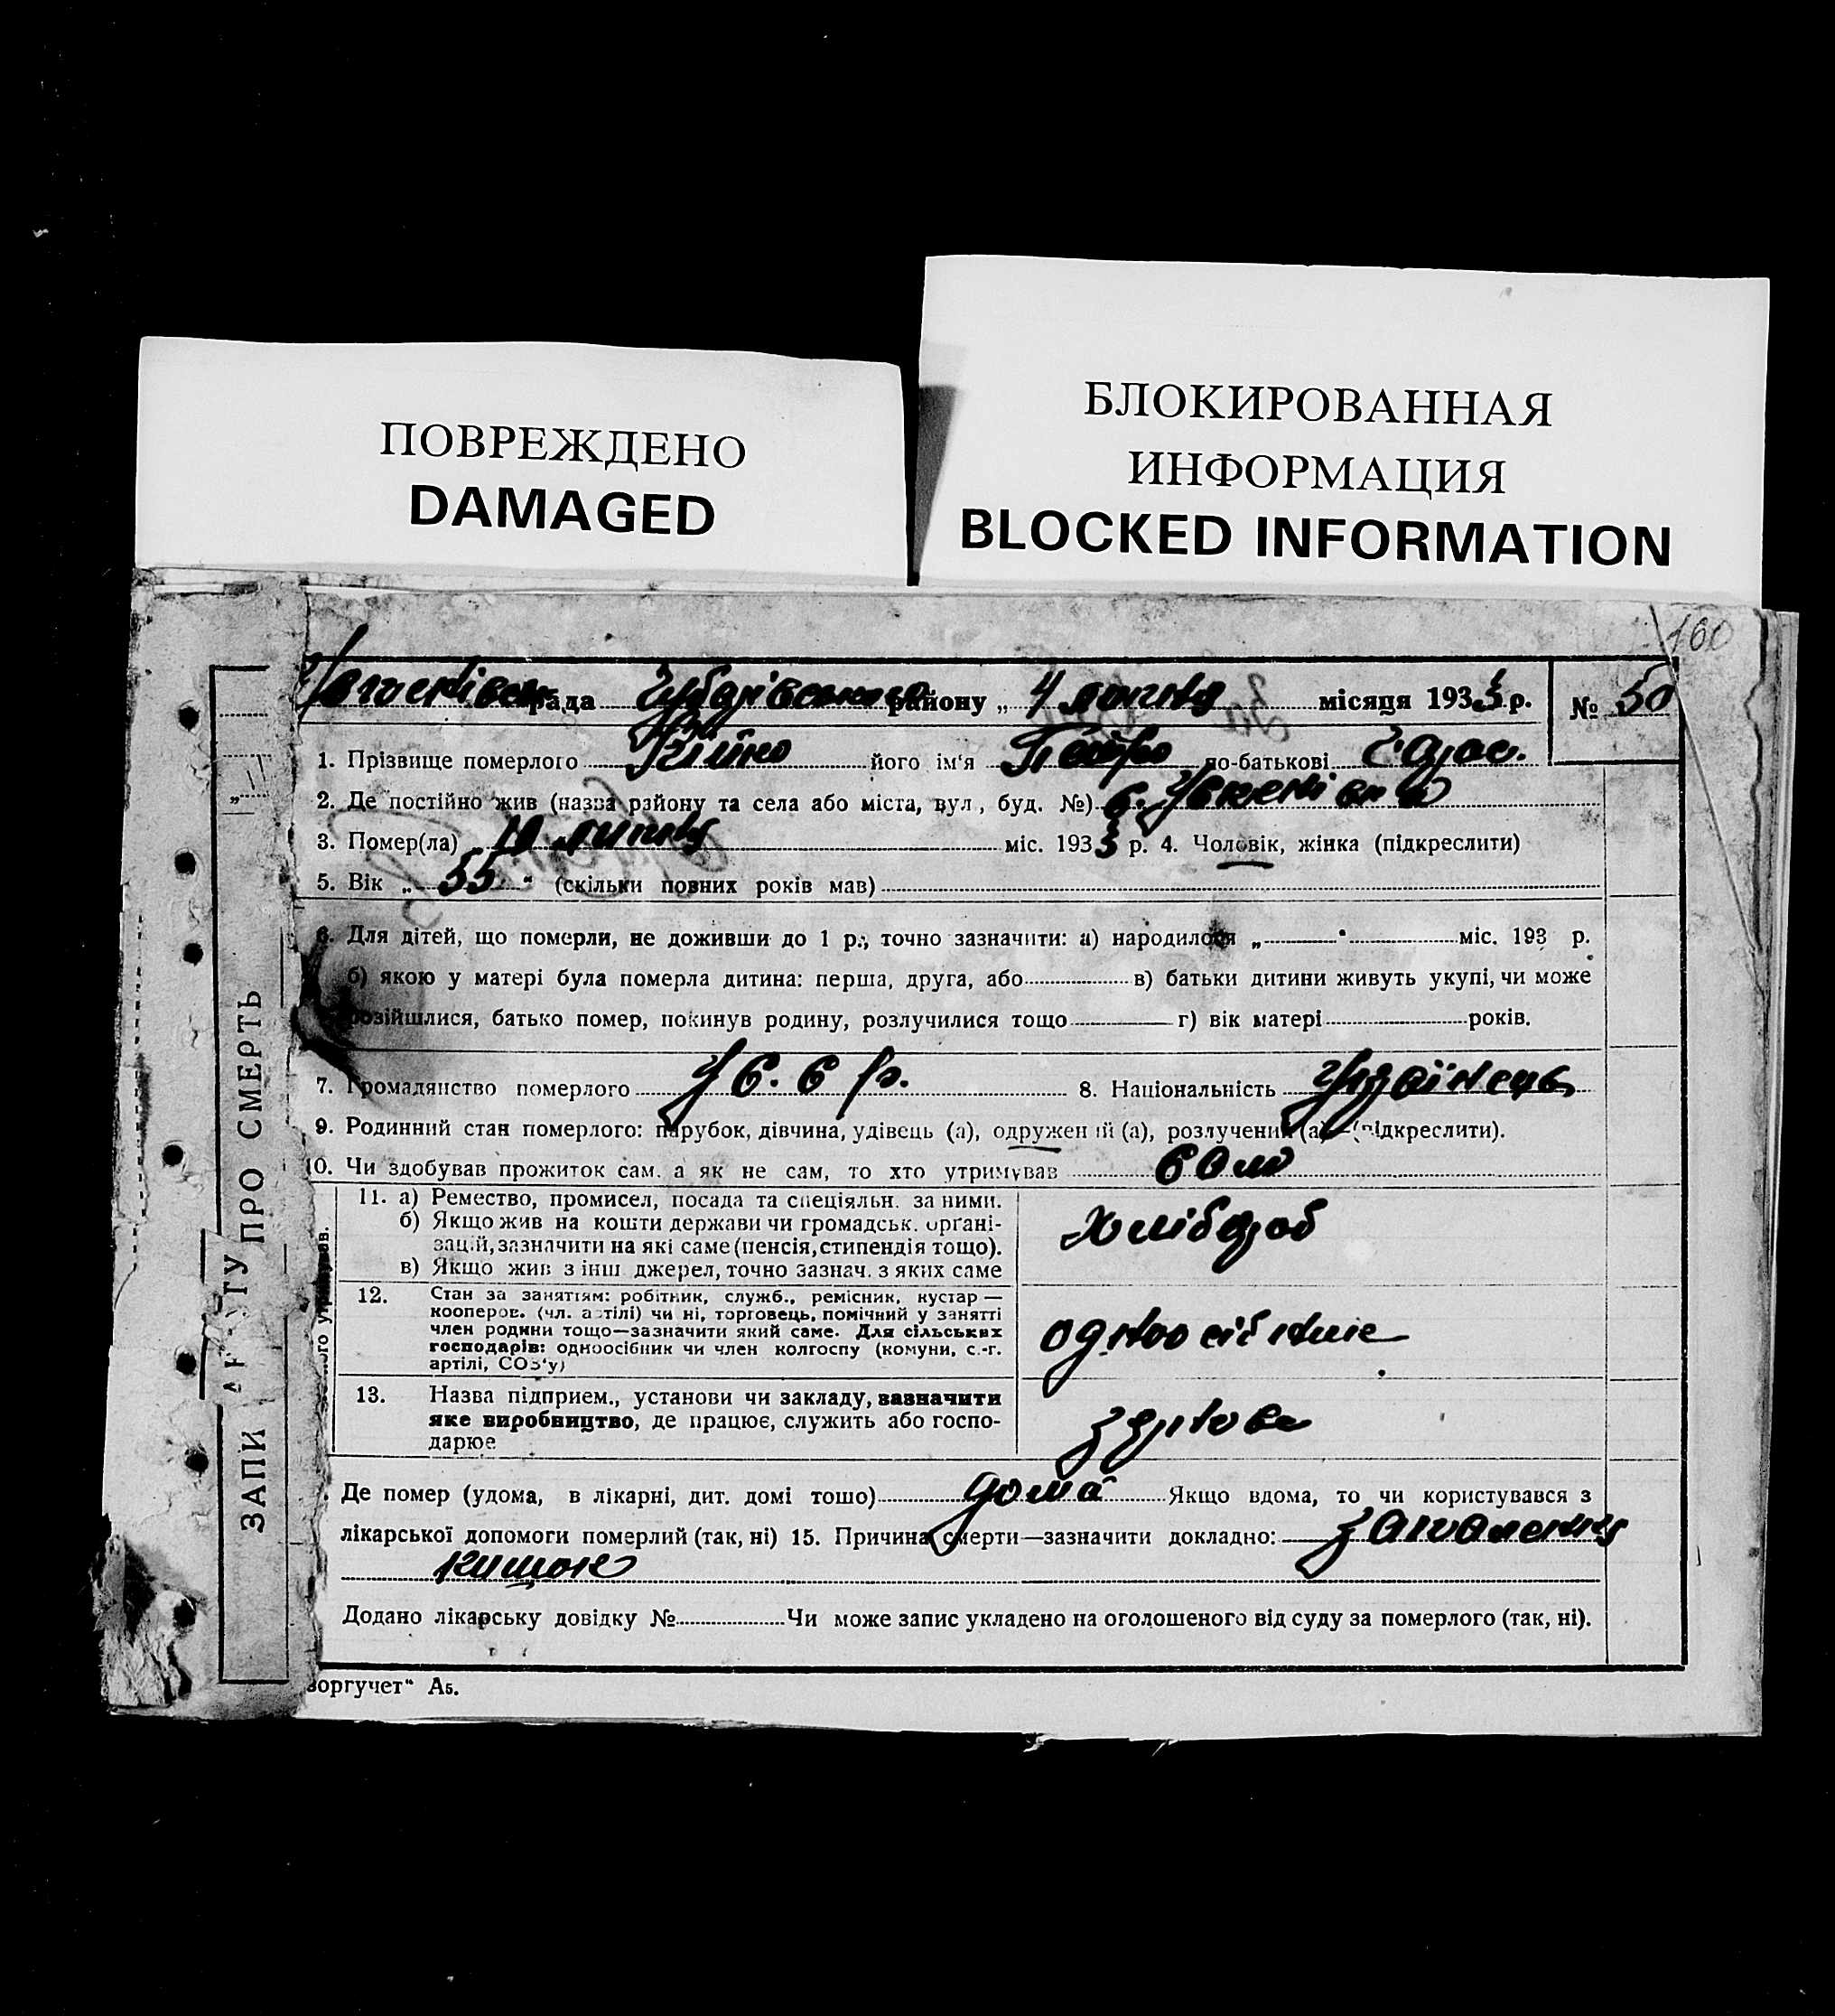 ПОВРЕЖДЕНО
DAMAGED
БЛОКИРОВАННАЯ
ИНФОРМАЦИЯ
BLOCKED INFORMATION
160
рада району „ 4 липня місяця 1933 р. № 50
1. Прізвище померлого його ім'я Петро по-батькові
2. Де постійно жив (назва району та села або міста, вул., буд. №) с.
3. Помер(ла) „ 10 липня міс. 1933 р. 4. Чоловік, жінка (підкреслити)
5. Вік „ 55 “ (скільки повних років мав)
6. Для дітей, що померли, не доживши до 1 р., точно зазначити: а) народилося „ “ міс. 193 р.
б) якою у матері була померла дитина: перша, друга, або в) батьки дитини живуть укупі, чи може
розійшлися, батько помер, покинув родину, розлучилися тощо г) вік матері років.
7. Громадянство померлого У.С.С.Р. 8. Національність Українець
9. Родинний стан померлого: парубок, дівчина, удівець (а), одружений (а), розлучений (а) — (підкреслити).
10. Чи здобував прожиток сам, а як не сам, то хто утримував сам
11. а) Ремество, промисел, посада та спеціяльн. за ними.
б) Якщо жив на кошти держави чи громадськ. органі-
зацій, зазначити на які саме (пенсія, стипендія тощо).
в) Якщо жив з інш. джерел, точно зазнач. з яких саме
хлібороб
12. Стан за заняттям: робітник, служб., ремісник, кустар —
кооперов. (чл. артілі) чи ні, торговець, помічний у занятті
член родини тощо—зазначити який саме. Для сільських
господарів: одноосібник чи член колгоспу (комуни, с.-г.
артілі, СОЗ'у)
одноосібник
13. Назва підприєм., установи чи закладу, зазначити
яке виробництво, де працює, служить або госпо-
дарює
Де помер (удома, в лікарні, дит. домі тощо) дома Якщо вдома, то чи користувався з
лікарської допомоги померлий (так, ні) 15. Причина смерти—зазначити докладно: запалення
кишок
Додано лікарську довідку № Чи може запис укладено на оголошеного від суду за померлого (так, ні).
воргучет“ А5.
ЗАПИ АКТУ ПРО СМЕРТЬ